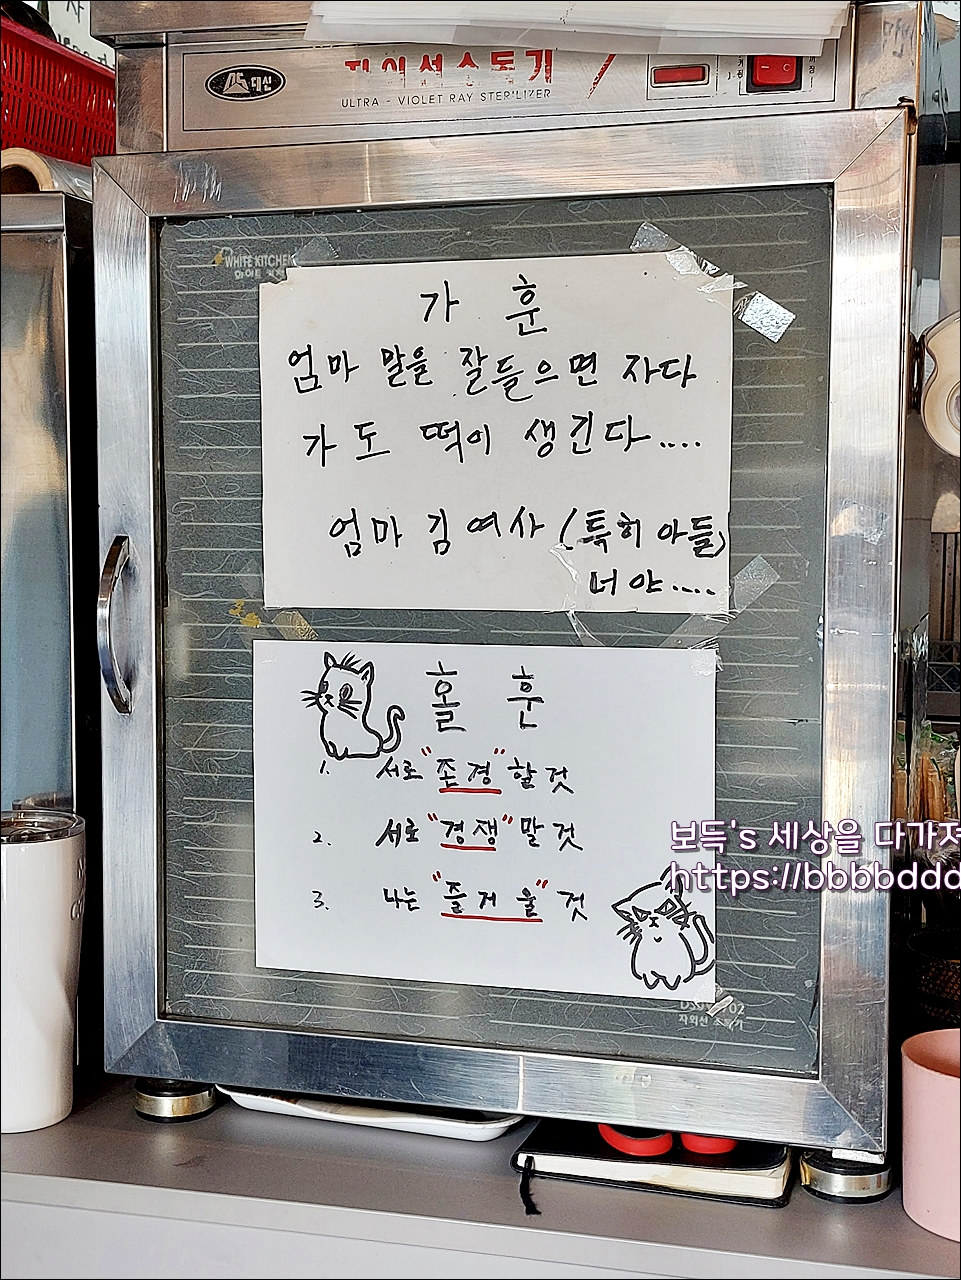 DS 대신
자외선소독기
ULTRA - VIOLET RAY STERILIZER
WHITE KITCHEN
가 훈
엄마 말을 잘들으면 자다
가도 떡이 생긴다....
엄마 김여사 (특히 아들)
너야....
홀 훈
1. 서로 "존경"할것
2. 서로 "경쟁"말것
3. 나는 "즐거울"것
자외선 소독기
보득's 세상을 다가져
https://bbbbddd